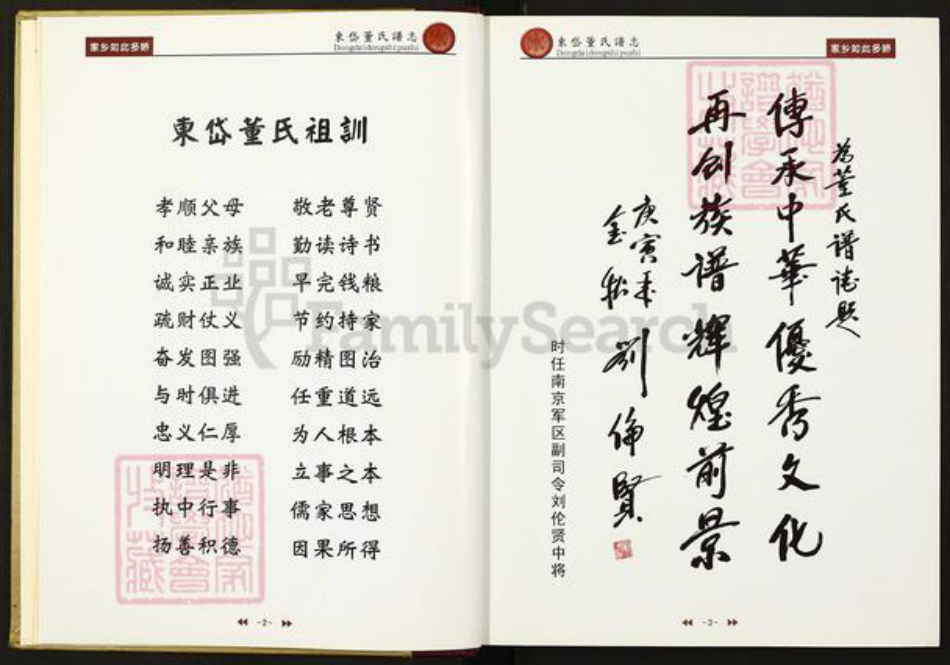 家乡如此多娇
東岱董氏譜志
Dongdaidongshipuzhi
東岱董氏祖訓
孝顺父母 敬老尊贤
和睦亲族 勤读诗书
诚实正业 早完钱粮
疏财仗义 节约持家
奋发图强 励精图治
与时俱进 任重道远
忠义仁厚 为人根本
明理是非 立事之本
执中行事 儒家思想
扬善积德 因果所得
-2-
東岱董氏譜志
Dongdaidongshipuzhi
家乡如此多娇
為董氏譜誌题
傳承中華優秀文化
再创族谱輝煌前景
庚寅年
金秋
劉倫賢
时任南京军区副司令刘伦贤中将
-3-
FamilySearch